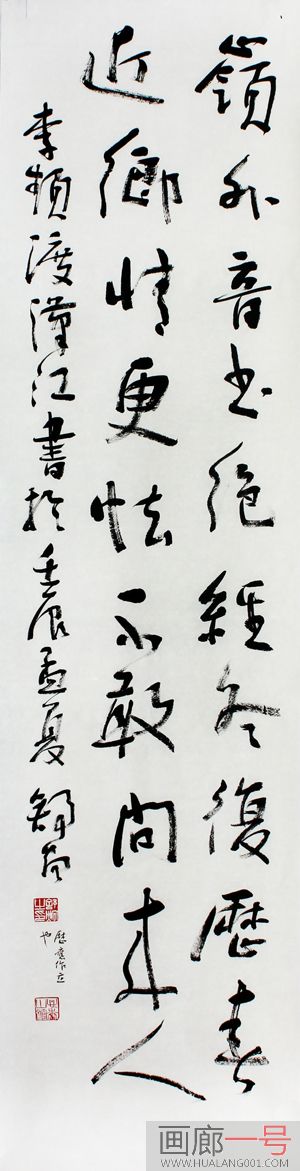 嶺外音书絕經冬復歷春
近鄉情更怯不敢問来人
李頻渡漢江書於壬辰孟夏
画廊一号
WWW.HUALANG001.COM